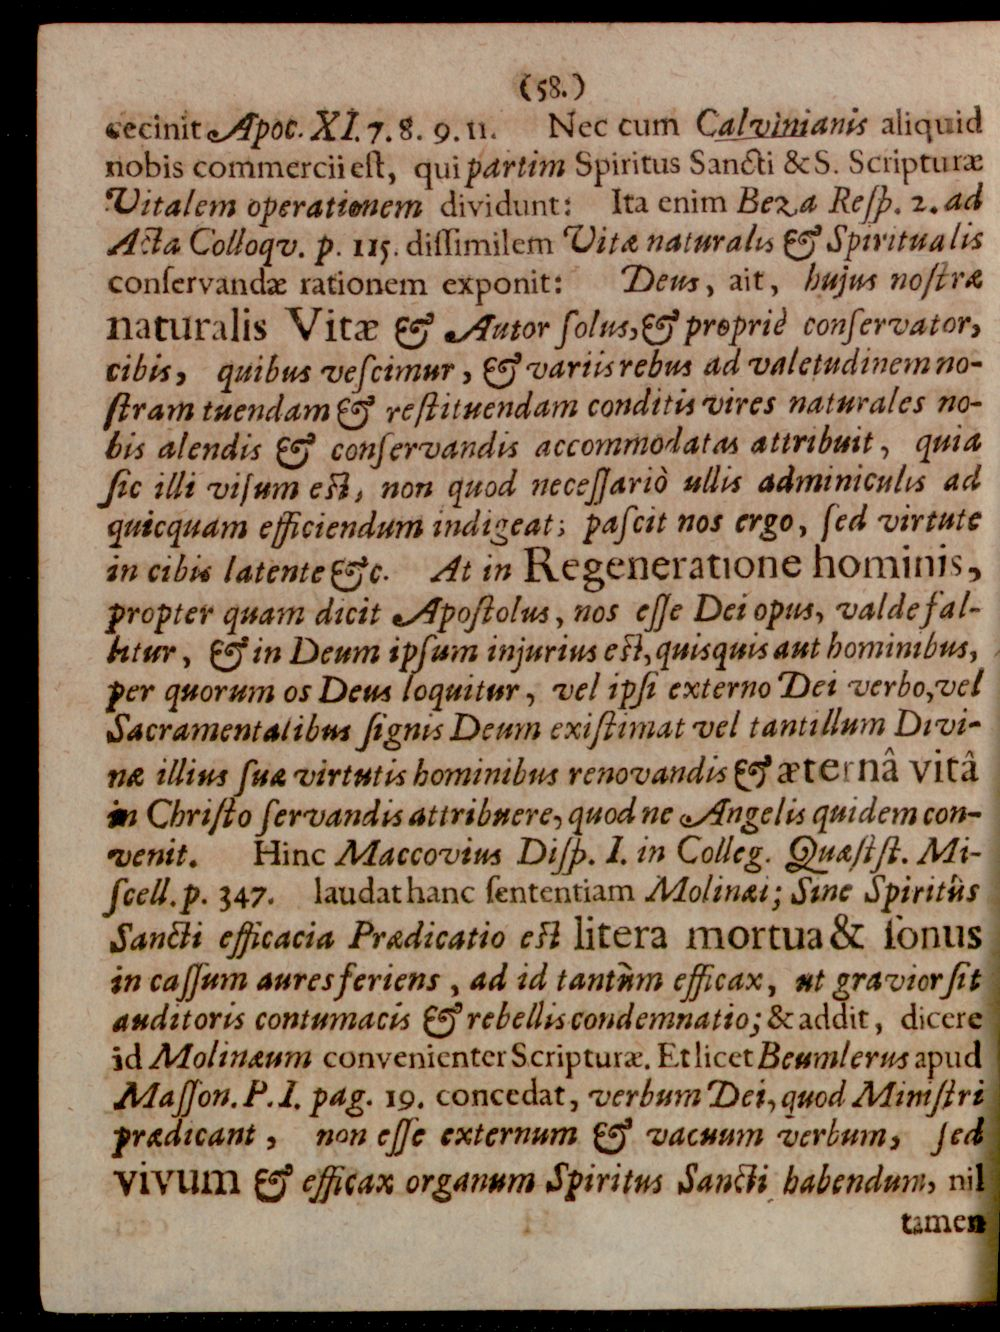 (58.)
cecinit Apoc. XI. 7. 8. 9. 11. Nec cum Calvinianis aliquid
nobis commercii eſt, qui partim Spiritus Sancti & S. Scripturæ
Vitalem operationem dividunt: Ita enim Beza Reſp. 2. ad
Acta Colloqv. p. 115. diſſimilem Vitæ naturalis & Spiritualis
conſervandæ rationem exponit: Deus, ait, hujus noſtræ
naturalis Vitæ & Autor ſolus, & propriè conſervator,
cibis, quibus veſcimur, & variis rebus ad valetudinem no-
ſtram tuendam & reſtituendam conditis vires naturales no-
bis alendis & conſervandis accommodatas attribuit, quia
ſic illi viſum eſt, non quod neceſſariò ullis adminiculis ad
quicquam efficiendum indigeat; paſcit nos ergo, ſed virtute
in cibis latente &c. At in Regeneratione hominis,
propter quam dicit Apoſtolus, nos eſſe Dei opus, valde fal-
litur, & in Deum ipſum injurius eſt, quisquis aut hominibus,
per quorum os Deus loquitur, vel ipſi externo Dei verbo, vel
Sacramentalibus ſignis Deum exiſtimat vel tantillum Divi-
næ illius ſuæ virtutis hominibus renovandis & æternâ vitâ
in Chriſto ſervandis attribuere, quod ne Angelis quidem con-
venit. Hinc Maccovius Diſp. I. in Colleg. Quæſtſt. Mi-
ſcell. p. 347. laudat hanc ſententiam Molinæi; Sine Spiritûs
Sancti efficacia Prædicatio eſt litera mortua & ſonus
in caſſum aures feriens, ad id tantùm efficax, ut gravior ſit
auditoris contumacis & rebellis condemnatio; & addit, dicere
id Molinæum convenienter Scripturæ. Et licet Beumlerus apud
Maſſon. P. I. pag. 19. concedat, verbum Dei, quod Miniſtri
prædicant, non eſſe externum & vacuum verbum, ſed
vivum & efficax organum Spiritus Sancti habendum, nil
tamen